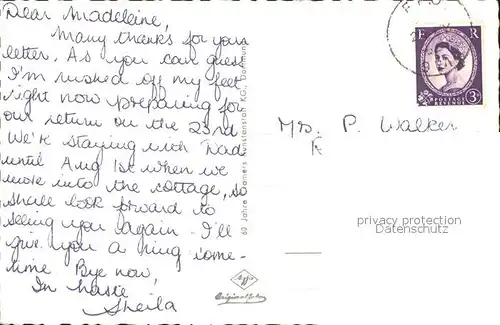 Dear Madeleine,
Many thanks for your
letter. As you can guess
I'm rushed off my feet
right now preparing for
our return on the 23rd.
We're staying with Dad
until Aug 1st when we
move into the cottage, so
shall look forward to
seeing you again. I'll
give you a ring some-
time. Bye now,
In haste
Sheila
60 Jahre Cramers Kunstanstalt KG., Dortmund
Agfa
E R
POSTAGE
REVENUE
3D
Mrs. P. Walker
privacy protection
Datenschutz